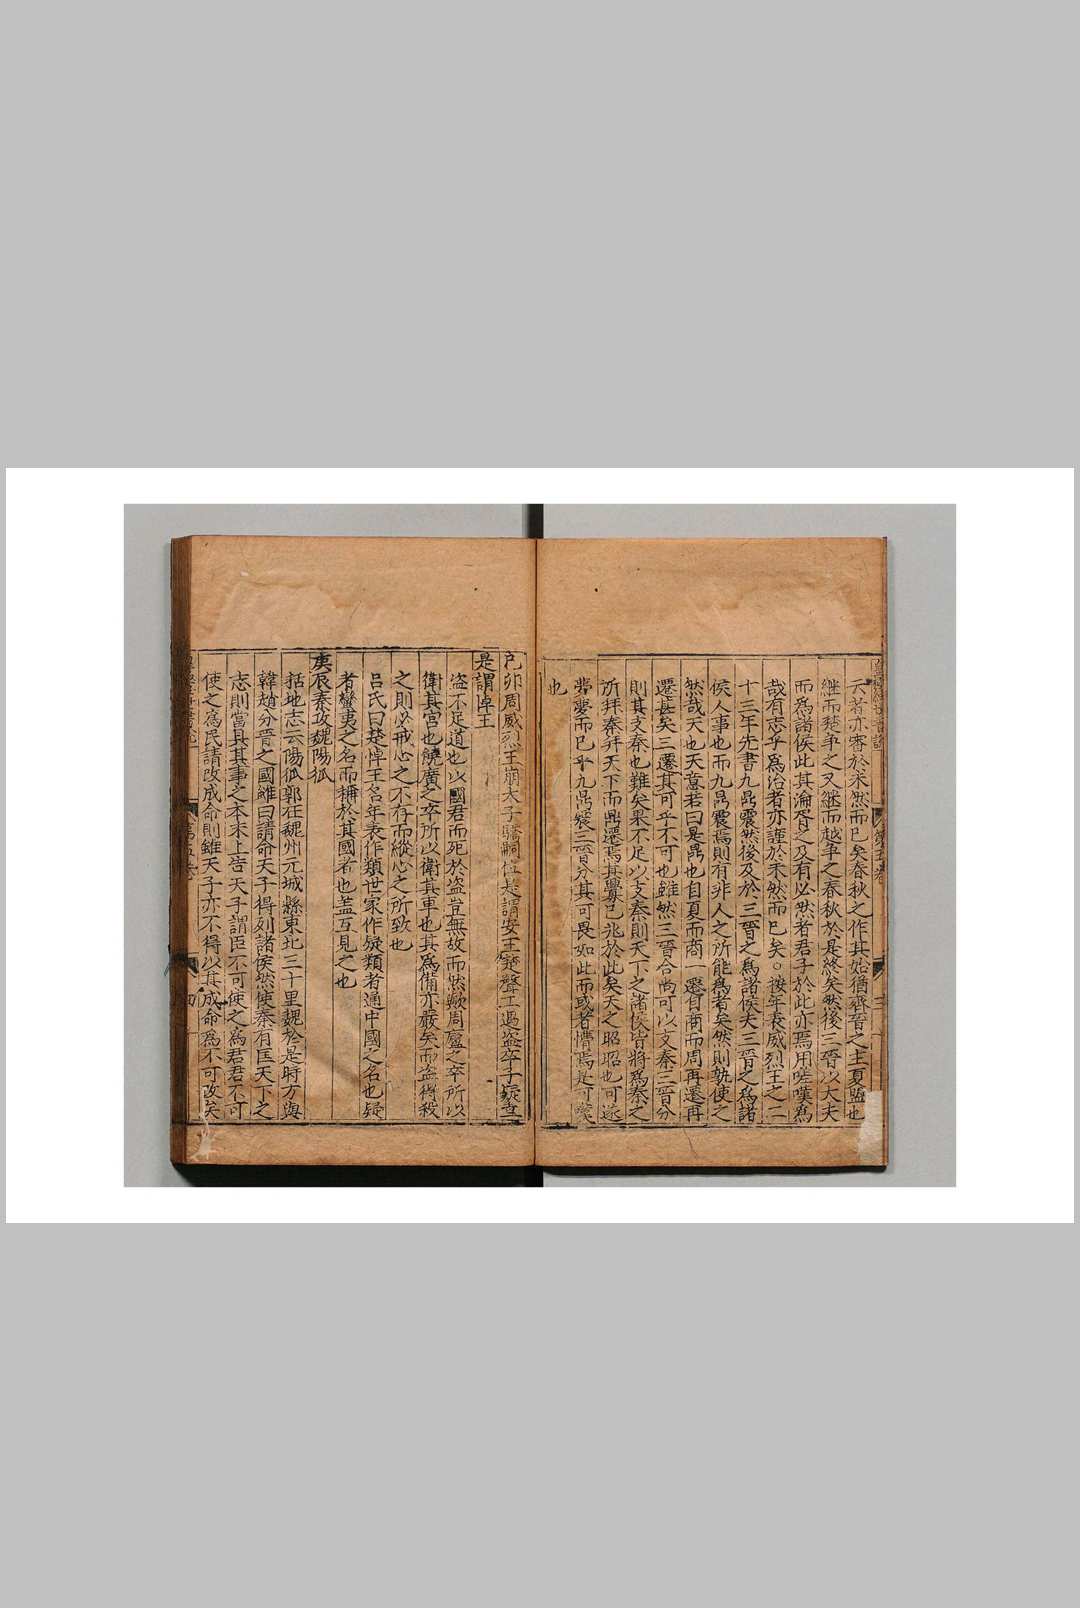 六者亦審於未然而已矣春秋之作其始猶齊晉之主夏盟也
継而楚争之又継而越争之春秋於是終矣然後三晉以大夫
而為諸侯此其淪胥之及有必然者君子於此亦焉用嗟嘆為
哉有志乎為治者亦謹於未然而已矣○按年表威烈王之二
十三年先書九鼎震然後及於三晉之為諸侯夫三晉之為諸
侯人事也而九鼎震焉則有非人之所能為者矣然則孰使之
然哉天也天意若曰是鼎也自夏而商一遷自商而周再遷再
遷甚矣三遷其可乎不可也雖然三晉合尚可以支秦三晉分
則其支秦也難矣果不足以支秦則天下之諸侯皆將為秦之
所拜秦拜天下而鼎遷焉其釁已兆於此矣天之昭昭也可遂
夢夢而已乎九鼎震三晉分其可畏如此而或者懵焉是可嘆
也
第五卷
三
己卯周威烈王崩太子驕嗣位是謂安王楚聲王遇盗卒子疑立
是謂悼王
盗不足道也以國君而死於盗豈無故而然歟周廬之卒所以
衛其宮也饒廣之卒所以衛其車也其為備亦嚴矣而盗得殺
之則必戒心之不存而縱心之所致也
吕氏曰楚悼王名年表作類世家作疑類者通中國之名也疑
者蠻夷之名而稱於其國者也盖互見之也
庚辰秦攻魏陽狐
括地志云陽狐郭在魏州元城縣東北三十里魏於是時方與
韓趙分晉之國雖曰請命天子得列諸侯然使秦有匡天下之
志則當具其事之本末上告天子謂臣不可使之為君君不可
使之為民請改成命則雖天子亦不得以其成命為不可改矣
第五卷
四